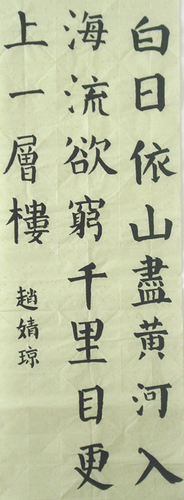 白日依山盡黄河入
海流欲窮千里目更
上一層樓
趙婧琼